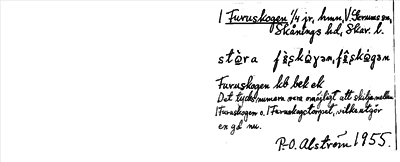 1 Furuskogen 1/4 jr, hmn, V. Gerums sn,
Skånings hd, Skar. l.
stòra
Furuskogen kb bek ek
Det tycks numera vara omöjligt att skilja mellan
1 Furuskogen o. 1 Furuskogstorpet, vilka utgör
en gd nu.
P-O. Alström 1955.